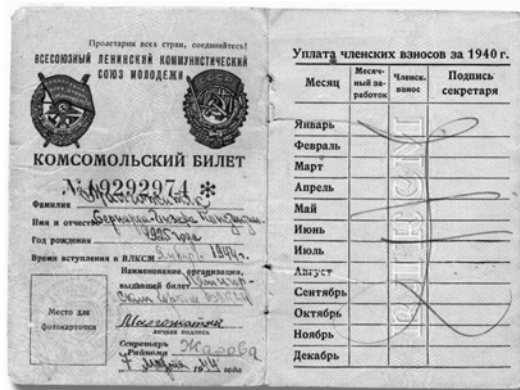 Пролетарии всех стран, соединяйтесь!
ВСЕСОЮЗНЫЙ ЛЕНИНСКИЙ КОММУНИСТИЧЕСКИЙ
СОЮЗ МОЛОДЕЖИ
КОМСОМОЛЬСКИЙ БИЛЕТ
№ 19292974 *
Фамилия
Имя и отчество
Год рождения 1925 года
Время вступления в ВЛКСМ 1944 г.
Наименование организации,
выдавшей билет
ВЛКСМ
Место для
фотокарточки
личная подпись
Секретарь
Райкома Жарова
7 Марта 1944 года
Уплата членских взносов за 1940 г.
Месяц
Месяч-
ный за-
работок
Членск.
взнос
Подпись
секретаря
Январь
Февраль
Март
Апрель
Май
Июнь
Июль
Август
Сентябрь
Октябрь
Ноябрь
Декабрь